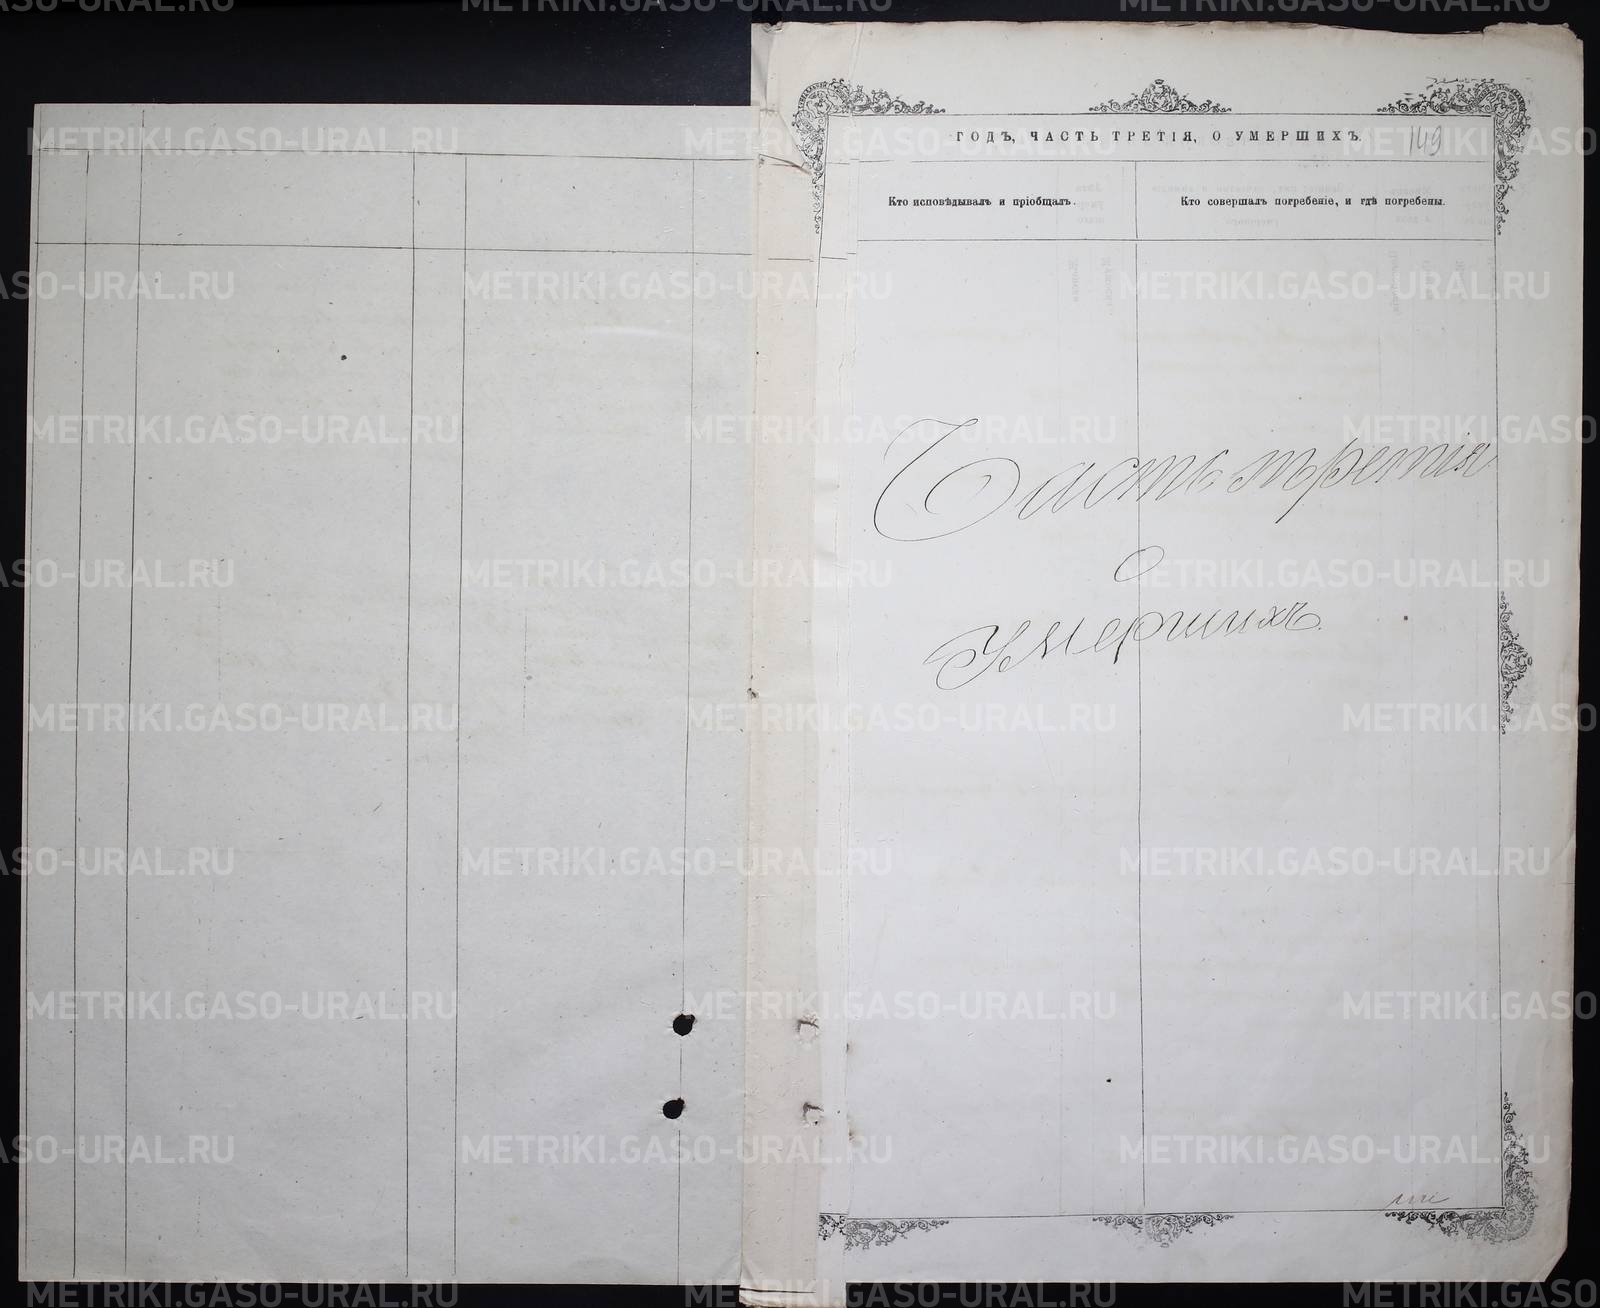 ГОДЪ, ЧАСТЬ ТРЕТІЯ, О УМЕРШИХЪ.
149
Кто исповѣдывалъ и пріобщалъ.
Кто совершалъ погребеніе, и гдѣ погребены.
Часть третія
О
Умершихъ.
METRIKI.GASO-URAL.RU